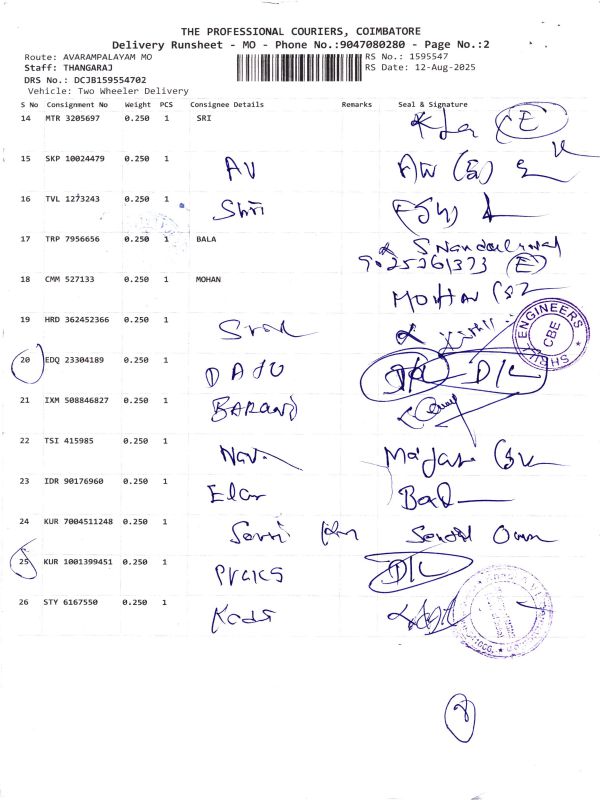 THE PROFESSIONAL COURIERS, COIMBATORE
Delivery Runsheet - MO - Phone No.:9047080280 - Page No.:2
Route: AVARAMPALAYAM MO RS No.: 1595547
Staff: THANGARAJ RS Date: 12-Aug-2025
DRS No.: DCJB159554702
Vehicle: Two Wheeler Delivery
S No Consignment No Weight PCS Consignee Details Remarks Seal & Signature
14 MTR 3205697 0.250 1 SRI (E)
15 SKP 10024479 0.250 1 AV
16 TVL 1273243 0.250 1 Shri
17 TRP 7956656 0.250 1 BALA
9025261373 (E)
18 CMM 527133 0.250 1 MOHAN MOHAN
19 HRD 362452366 0.250 1
ENGINEERS CBE
20 EDQ 23304189 0.250 1 D/L D/L
21 IXM 508846827 0.250 1 BARANI
22 TSI 415985 0.250 1
23 IDR 90176960 0.250 1 Elan
24 KUR 7004511248 0.250 1
25 KUR 1001399451 0.250 1 D/L
26 STY 6167550 0.250 1